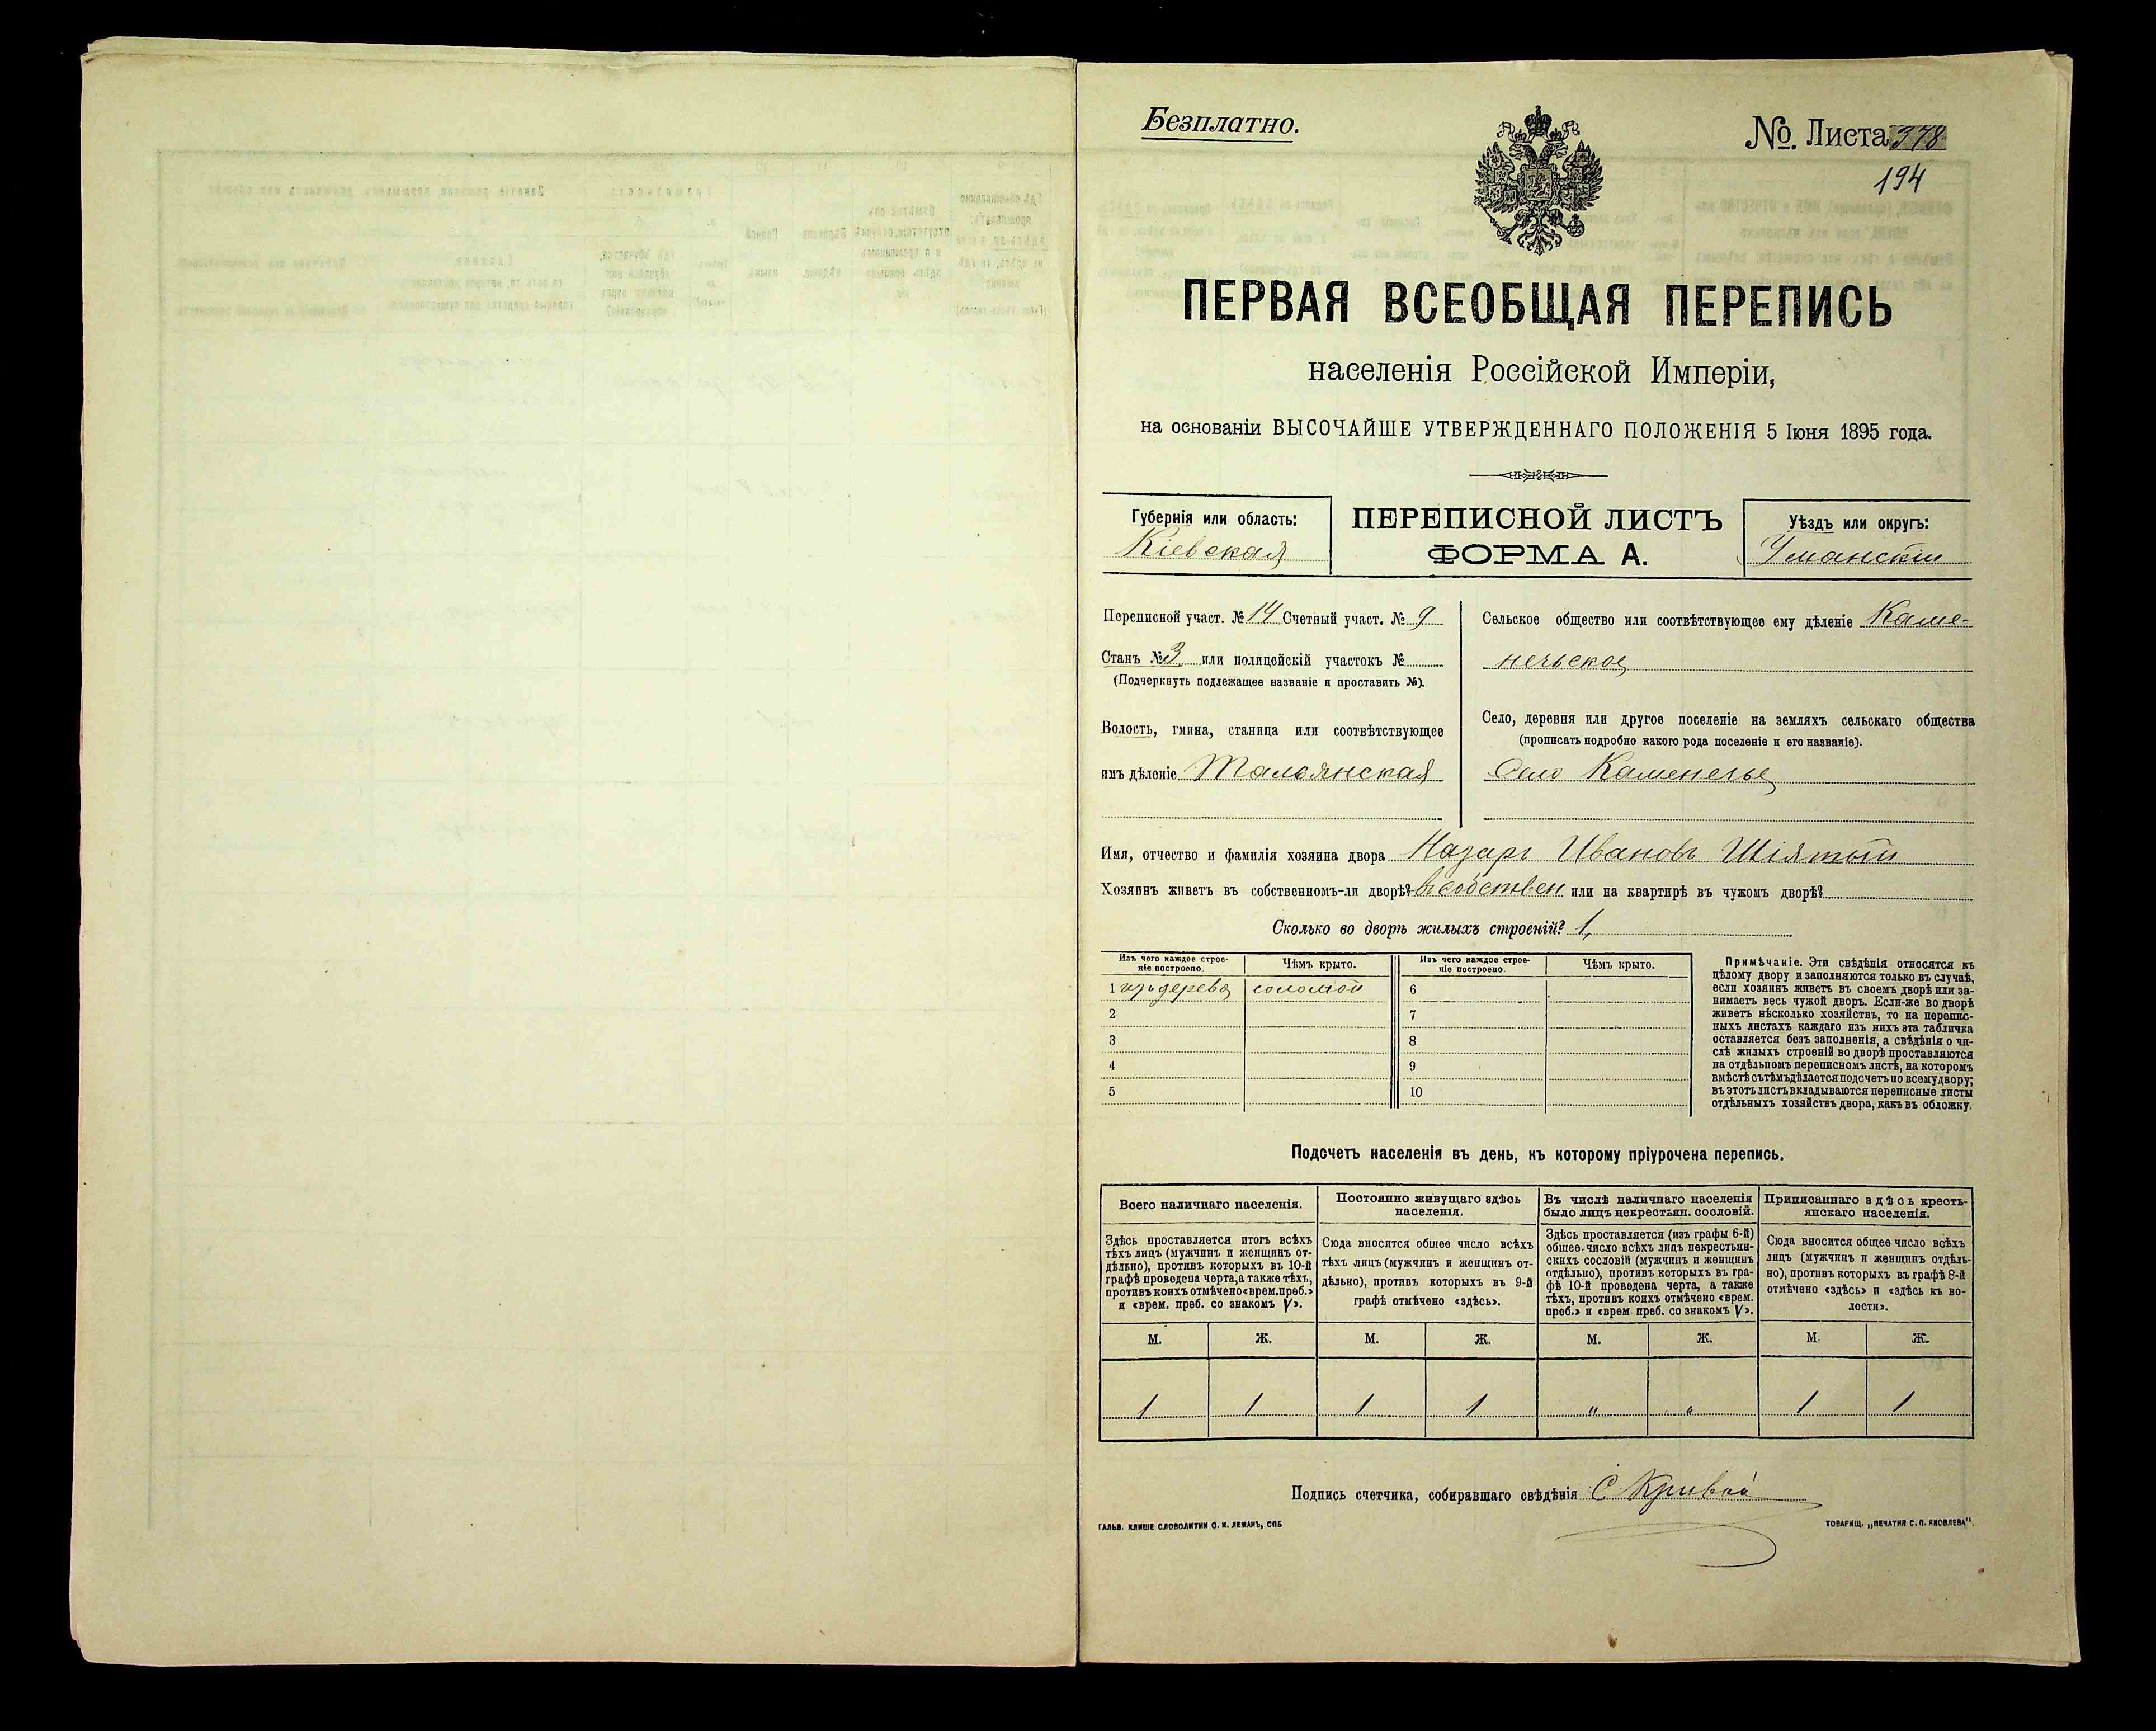 Безплатно.
№. Листа 378
194
ПЕРВАЯ ВСЕОБЩАЯ ПЕРЕПИСЬ
населенія Россійской Имперіи,
на основаніи ВЫСОЧАЙШЕ УТВЕРЖДЕННАГО ПОЛОЖЕНІЯ 5 Іюня 1895 года.
Губернія или область:
Кіевская
ПЕРЕПИСНОЙ ЛИСТЪ
ФОРМА А.
Уѣздъ или округъ:
Уманскій
Переписной участ. № 14 Счетный участ. № 9
Станъ № 3 или полицейскій участокъ №
(Подчеркнуть подлежащее названіе и проставить №).
Волость, гмина, станица или соотвѣтствующее
имъ дѣленіе Тальянская
Сельское общество или соотвѣтствующее ему дѣленіе Каме-
нечьское
Село, деревня или другое поселеніе на земляхъ сельскаго общества
(прописать подробно какого рода поселеніе и его названіе).
Село Каменечье
Имя, отчество и фамилія хозяина двора Назаръ Ивановъ Шіятый
Хозяинъ живетъ въ собственномъ-ли дворѣ? въ собствен или на квартирѣ въ чужомъ дворѣ?
Сколько во дворѣ жилыхъ строеній? 1,
Изъ чего каждое строе-
ніе построено.
Чѣмъ крыто.
Изъ чего каждое строе-
ніе построено.
Чѣмъ крыто.
1 изъ дерева соломой 6
2 7
3 8
4 9
5 10
Примѣчаніе. Эти свѣдѣнія относятся къ
цѣлому двору и заполняются только въ случаѣ,
если хозяинъ живетъ въ своемъ дворѣ или за-
нимаетъ весь чужой дворъ. Если-же во дворѣ
живетъ нѣсколько хозяйствъ, то на перепис-
ныхъ листахъ каждаго изъ нихъ эта табличка
оставляется безъ заполненія, а свѣдѣнія о чи-
слѣ жилыхъ строеній во дворѣ проставляются
на отдѣльномъ переписномъ листѣ, на которомъ
вмѣстѣ съ тѣмъ дѣлается подсчетъ по всему двору;
въ этотъ листъ вкладываются переписные листы
отдѣльныхъ хозяйствъ двора, какъ въ обложку.
Подсчетъ населенія въ день, къ которому пріурочена перепись.
Всего наличнаго населенія.
Здѣсь проставляется итогъ всѣхъ
тѣхъ лицъ (мужчинъ и женщинъ от-
дѣльно), противъ которыхъ въ 10-й
графѣ проведена черта, а также тѣхъ,
противъ коихъ отмѣчено «врем. преб.»
и «врем. преб. со знакомъ V».
Постоянно живущаго здѣсь
населенія.
Сюда вносится общее число всѣхъ
тѣхъ лицъ (мужчинъ и женщинъ от-
дѣльно), противъ которыхъ въ 9-й
графѣ отмѣчено «здѣсь».
Въ числѣ наличнаго населенія
было лицъ некрестьян. сословій.
Здѣсь проставляется (изъ графы 6-й)
общее число всѣхъ лицъ некрестьян-
скихъ сословій (мужчинъ и женщинъ
отдѣльно), противъ которыхъ въ гра-
фѣ 10-й проведена черта, а также
тѣхъ, противъ коихъ отмѣчено «врем.
преб.» и «врем. преб. со знакомъ V».
Приписаннаго здѣсь кресть-
янскаго населенія.
Сюда вносится общее число всѣхъ
лицъ (мужчинъ и женщинъ отдѣль-
но), противъ которыхъ въ графѣ 8-й
отмѣчено «здѣсь» и «здѣсь къ во-
лости».
М. Ж. М. Ж. М. Ж. М. Ж.
1 1 1 1 " " 1 1
Подпись счетчика, собиравшаго свѣдѣнія С Кривой
ГАЛЬВ. КЛИШЕ СЛОВОЛИТНИ О. И. ЛЕМАНЪ, СПБ
ТОВАРИЩ. „ПЕЧАТНЯ С. П. ЯКОВЛЕВА".